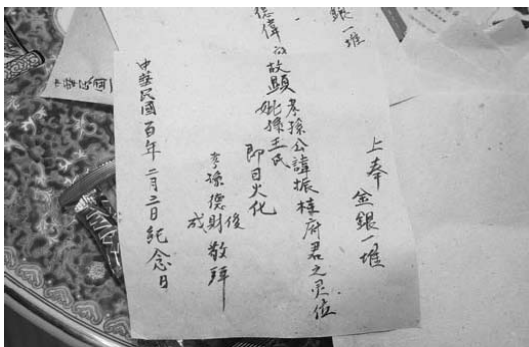 銀一堆
德偉
上奉 金銀一堆
故顯
考孫公諱振桂府君之灵位
妣孫王氏
即日火化
孝孫德財
俊
成
敬拜
中華民國百年二月二日紀念日